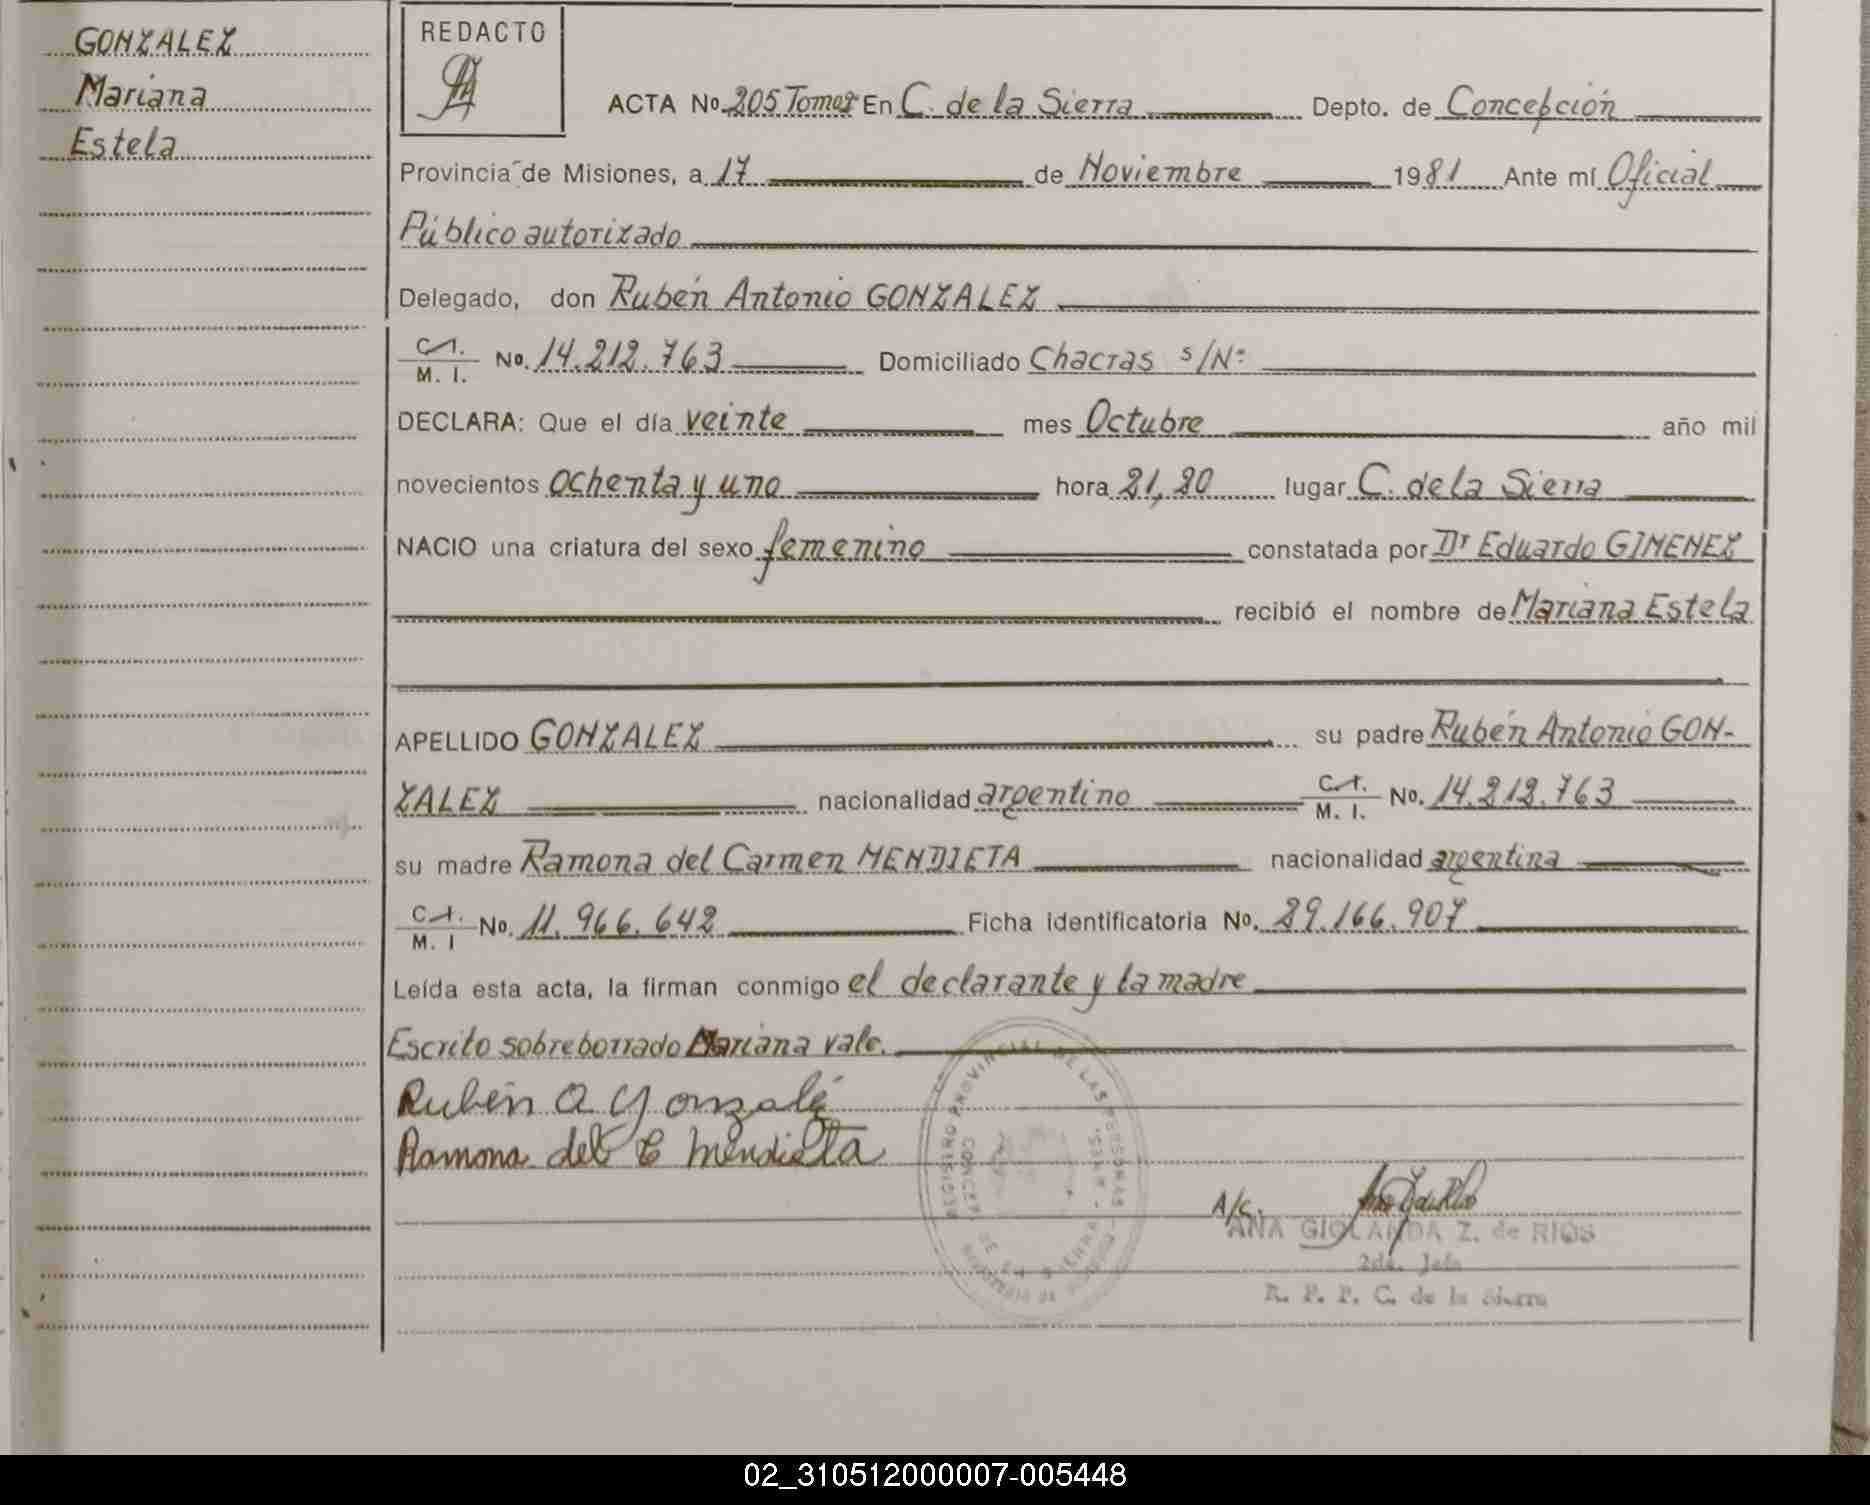 GONZALEZ
Mariana
Estela
REDACTO
ACTA No. 205 Tomo En C. de la Sierra Depto. de Concepción
Provincia de Misiones, a 17 de Noviembre 1981 Ante mí Oficial
Público autorizado
Delegado, don Rubén Antonio GONZALEZ
C.I.
M. I. No. 14.212.763 Domiciliado Chacras s/Nº
DECLARA: Que el día veinte mes Octubre año mil
novecientos ochenta y uno hora 21,20 lugar C. de la Sierra
NACIO una criatura del sexo femenino constatada por Dr Eduardo GIMENEZ
recibió el nombre de Mariana Estela
APELLIDO GONZALEZ su padre Rubén Antonio GON-
ZALEZ nacionalidad argentino C.I. M. I. No. 14.212.763
su madre Ramona del Carmen MENDIETA nacionalidad argentina
C.I.
M. I No. 11.966.642 Ficha identificatoria No. 29.166.907
Leída esta acta, la firman conmigo el declarante y la madre
Escrito sobreborrado Mariana vale.
Rubén A Gonzalé
Ramona del C Mendieta
REGISTRO PROVINCIAL DE LAS PERSONAS
CONCEPC. DE LA SIERRA - MNES.
A/C.
ANA GIOLANDA Z. de RIOS
2da. Jefa
R. P. P. C. de la Sierra
02_310512000007-005448